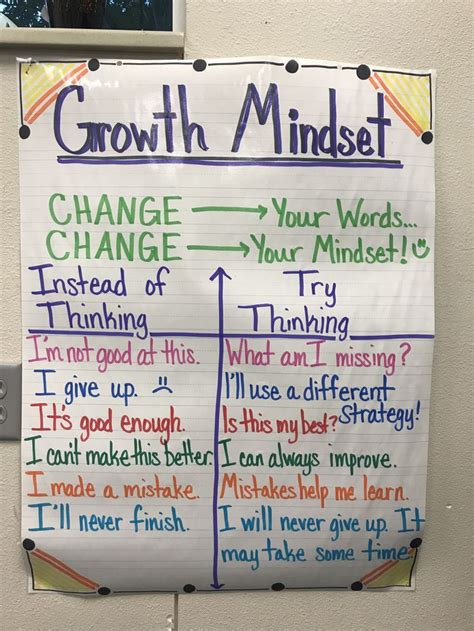 Growth Mindset
CHANGE → Your Words...
CHANGE → Your Mindset!
Instead of
Thinking
I'm not good at this.
I give up.
It's good enough.
I can't make this better.
I made a mistake.
I'll never finish.
Try
Thinking
What am I missing?
I'll use a different
Strategy!
Is this my best?
I can always improve.
Mistakes help me learn.
I will never give up. It
may take some time.